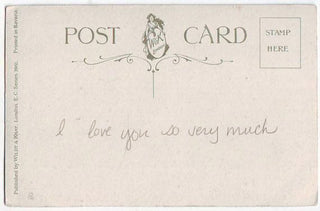 POST CARD
STAMP
HERE
Published by WILDT & KRAY, London, E.C. Series
Printed in Bavaria.
I love you so very much